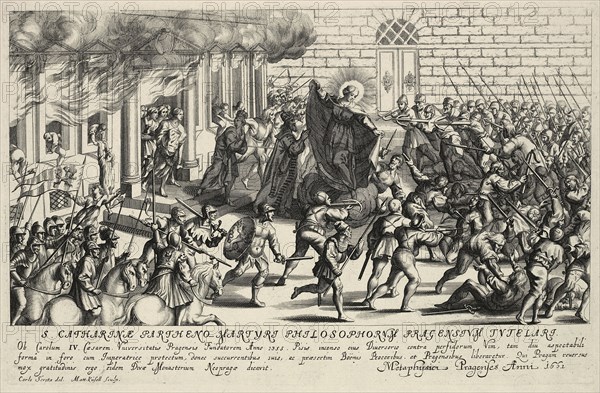 S. CATHARINÆ PARTHENO-MARTYRI PHILOSOPHORVM PRAGENSIVM TVTELARI.
Ob Carolum IV. Cæsarem Universitatis Pragensis Fundatorem Anno 1355. Pisis incenso eius Diversorio contra perfidorum Vim, tam diu aspectabili
formâ in foro cum Imperatrice protectum, donec succurrentibus suis, ac præsertim Boëmis Proceribus et Pragensibus liberaretur. Qui Pragam reversus
mox gratitudinis ergo eidem Divæ Monasterium Neopragæ dicavit.
Metaphysici Pragenses Anni 1652
Carlo Screta del. Matt. Küsell sculps.